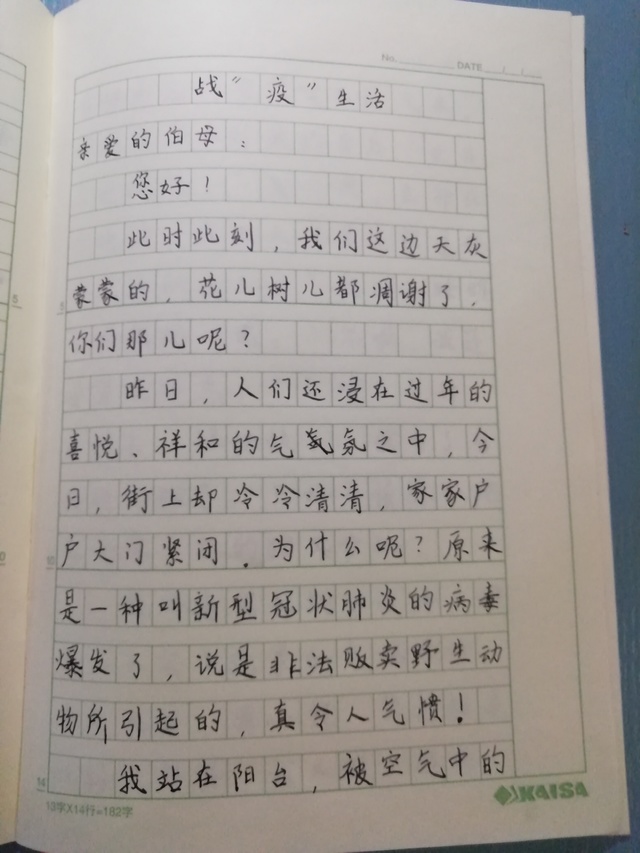 No. DATE / /
战“疫”生活
亲爱的伯母：
您好！
此时此刻，我们这边天灰
蒙蒙的，花儿树儿都凋谢了，
你们那儿呢？
昨日，人们还浸在过年的
喜悦、祥和的气氛之中，今
日，街上却冷冷清清，家家户
户大门紧闭．为什么呢？原来
是一种叫新型冠状肺炎的病毒
爆发了，说是非法贩卖野生动
物所引起的，真令人气惯！
我站在阳台，被空气中的
5
10
14
13字X14行=182字
KAISA
5
0